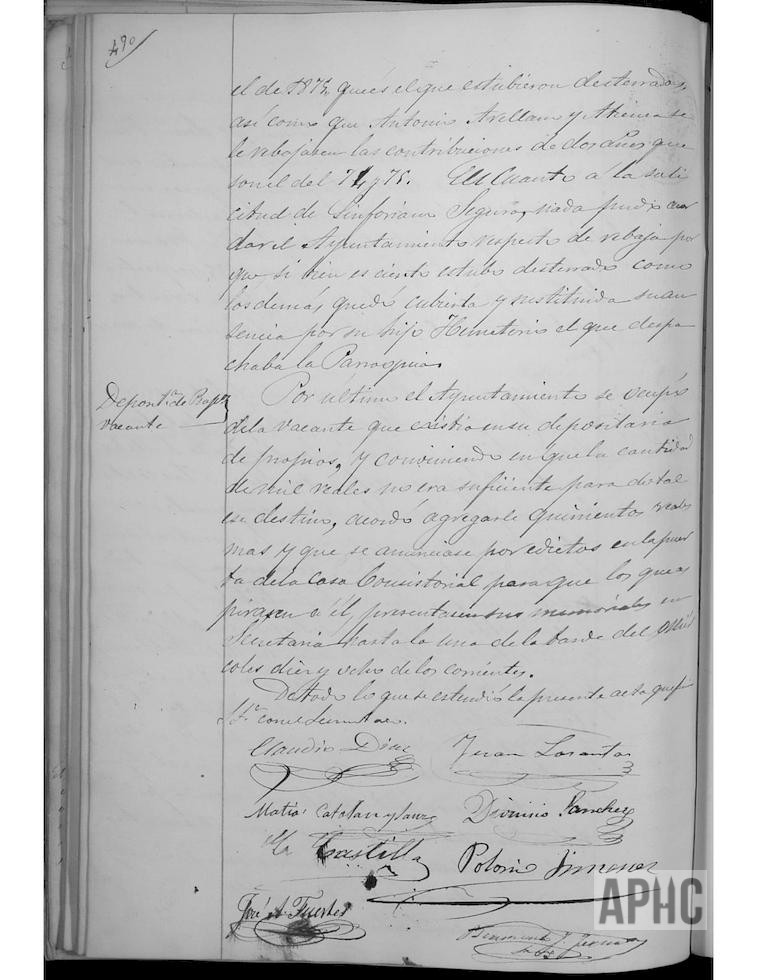 490
el de 1874 que es el que estubieron desterrados,
así como que Antonio Arellano y Atienza se
le rebajasen las contribuciones de dos años que
son el del 74 y 75. En Cuanto a la soli
citud de Sinforiano Seguro, nada pudo acor
dar el Ayuntamiento respecto de rebaja por
que si bien es cierto estubo desterrado como
los demas quedó cubierta y sustituida su au
sencia por su hijo Hemeterio el que despa
chaba la Parroquia.
Deposit.ª de Prop.s
vacante
Por ultimo el Ayuntamiento se ocupó
de la vacante que existia en su depositaria
de propios, y conviniendo en que la cantidad
de mil reales no era suficiente para dotal
ese destino, acordó agregarle quinientos reales
mas y que se anunciase por edictos en la puer
ta de la Casa Consistorial para que los que as
pirasen a él, presentasen sus memoriales en
Secretaria hasta la una de la tarde del Miér
coles diez y ocho de los corrientes.
De todo lo que se estendió la presente acta que
con el Secretario.
Claudio Diaz
Juan Losantos
Matias Catalan y Sanz
Dionisio Sanchez
Castilla
Polonio Jimenez
José A. Fuertes
APHC